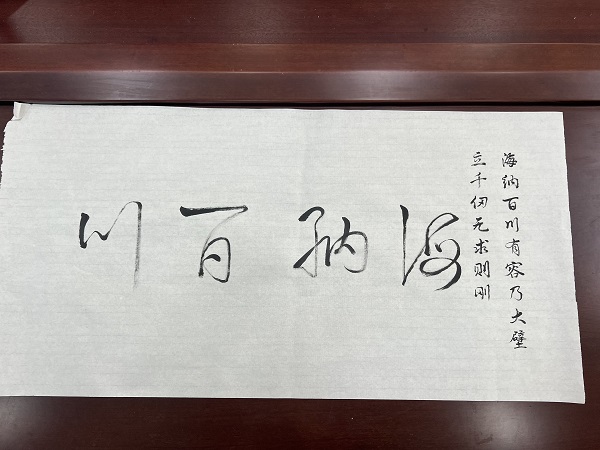 海纳百川有容乃大壁
立千仞无求则刚
海纳百川